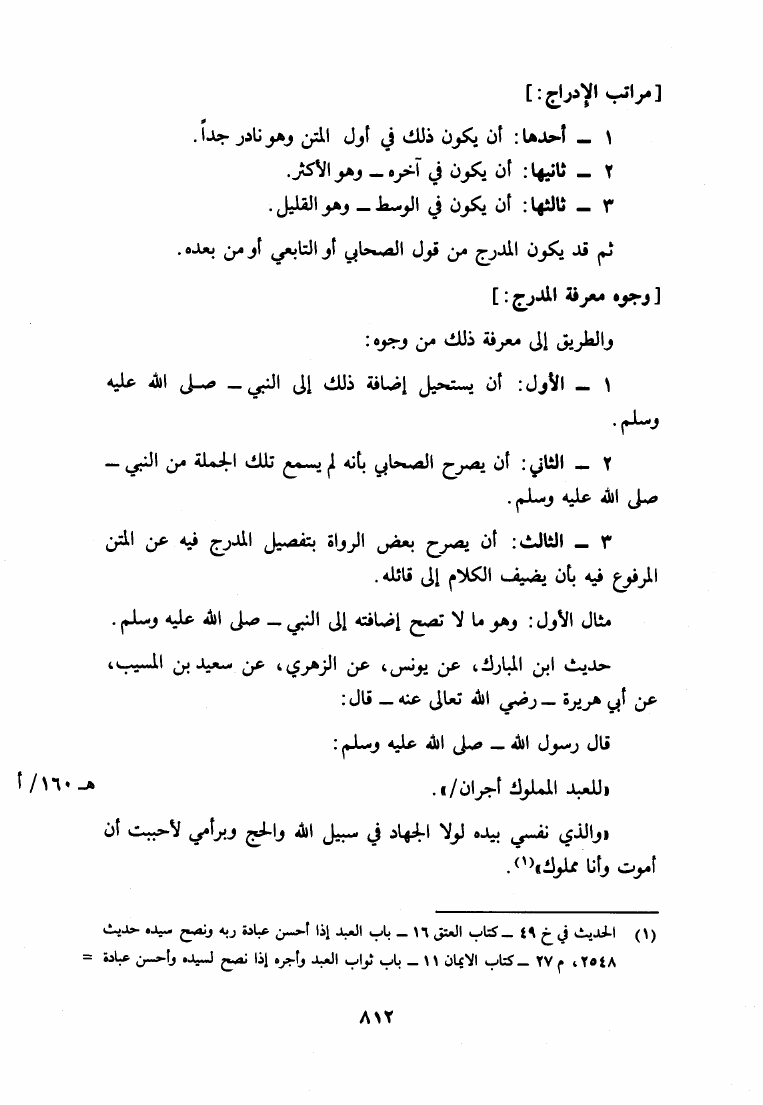 [مراتب الإدراج:]
١ ـ أحدها: أن يكون ذلك في أول المتن وهو نادر جداً.
٢ ـ ثانيها: أن يكون في آخره ـ وهو الأكثر.
٣ ـ ثالثها: أن يكون في الوسط ـ وهو القليل.
ثم قد يكون المدرج من قول الصحابي أو التابعي أو من بعده.
[وجوه معرفة المدرج:]
والطريق إلى معرفة ذلك من وجوه:
١ ـ الأول: أن يستحيل إضافة ذلك إلى النبي ـ صلى الله عليه
وسلم.
٢ ـ الثاني: أن يصرح الصحابي بأنه لم يسمع تلك الجملة من النبي ـ
صلى الله عليه وسلم.
٣ ـ الثالث: أن يصرح بعض الرواة بتفصيل المدرج فيه عن المتن
المرفوع فيه بأن يضيف الكلام إلى قائله.
مثال الأول: وهو ما لا تصح إضافته إلى النبي ـ صلى الله عليه وسلم.
حديث ابن المبارك، عن يونس، عن الزهري، عن سعيد بن المسيب،
عن أبي هريرة ـ رضي الله تعالى عنه ـ قال:
قال رسول الله ـ صلى الله عليه وسلم:
«للعبد المملوك أجران/». هـ ١٦٠/ أ
«والذي نفسي بيده لولا الجهاد في سبيل الله والحج وبرأمي لأحببت أن
أموت وأنا مملوك»(١).
(١) الحديث في خ ٤٩ ـ كتاب العتق ١٦ ـ باب العبد إذا أحسن عبادة ربه ونصح سيده حديث
٢٥٤٨، م ٢٧ ـ كتاب الايمان ١١ ـ باب ثواب العبد وأجره إذا نصح لسيده وأحسن عبادة =
٨١٢